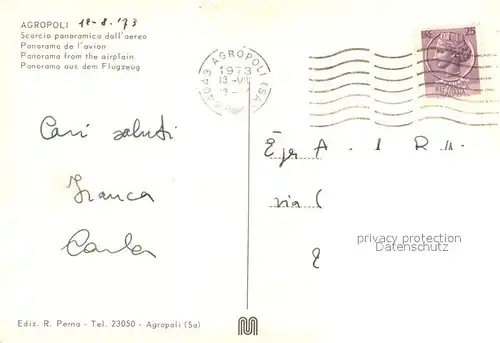 AGROPOLI 12-8.'73
Scorcio panoramico dall'aereo
Panorama de l'avion
Panorama from the airplain
Panorama aus dem Flugzeug
84043 AGROPOLI (SA)
1973
13
25
Cari saluti
Franca
Carla
via
privacy protection
watermark
Ediz. R. Perna - Tel. 23050 - Agropoli (Sa)